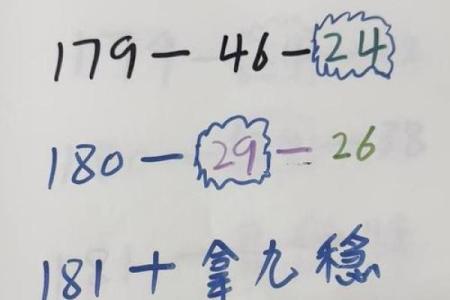 179-46-24
180-29-26
181+拿九稳